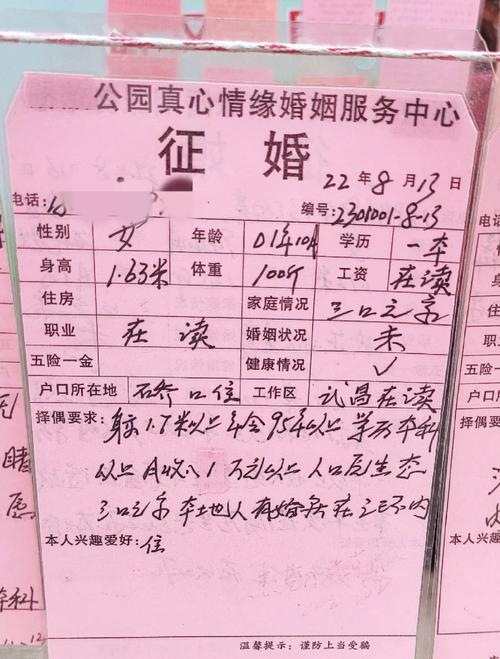 公园真心情缘婚姻服务中心
征 婚
22 年 8 月 13 日
电话: 编号: 2301001-8-13
性别 女 年龄 01年10月 学历 一本
身高 1.63米 体重 100斤 工资 在读
住房 家庭情况 三口之家
职业 在读 婚姻状况 未
五险一金 健康情况 ✓
户口所在地 硚口住 工作区 武昌在读
择偶要求: 身高1.7米以上 年令95年以上 学历本科
以上 月收入1万以上 人口 生态
三口之家 本地人 有婚房在三环内
本人兴趣爱好: 住
温馨提示: 谨防上当受骗
睹
愿
本科
12